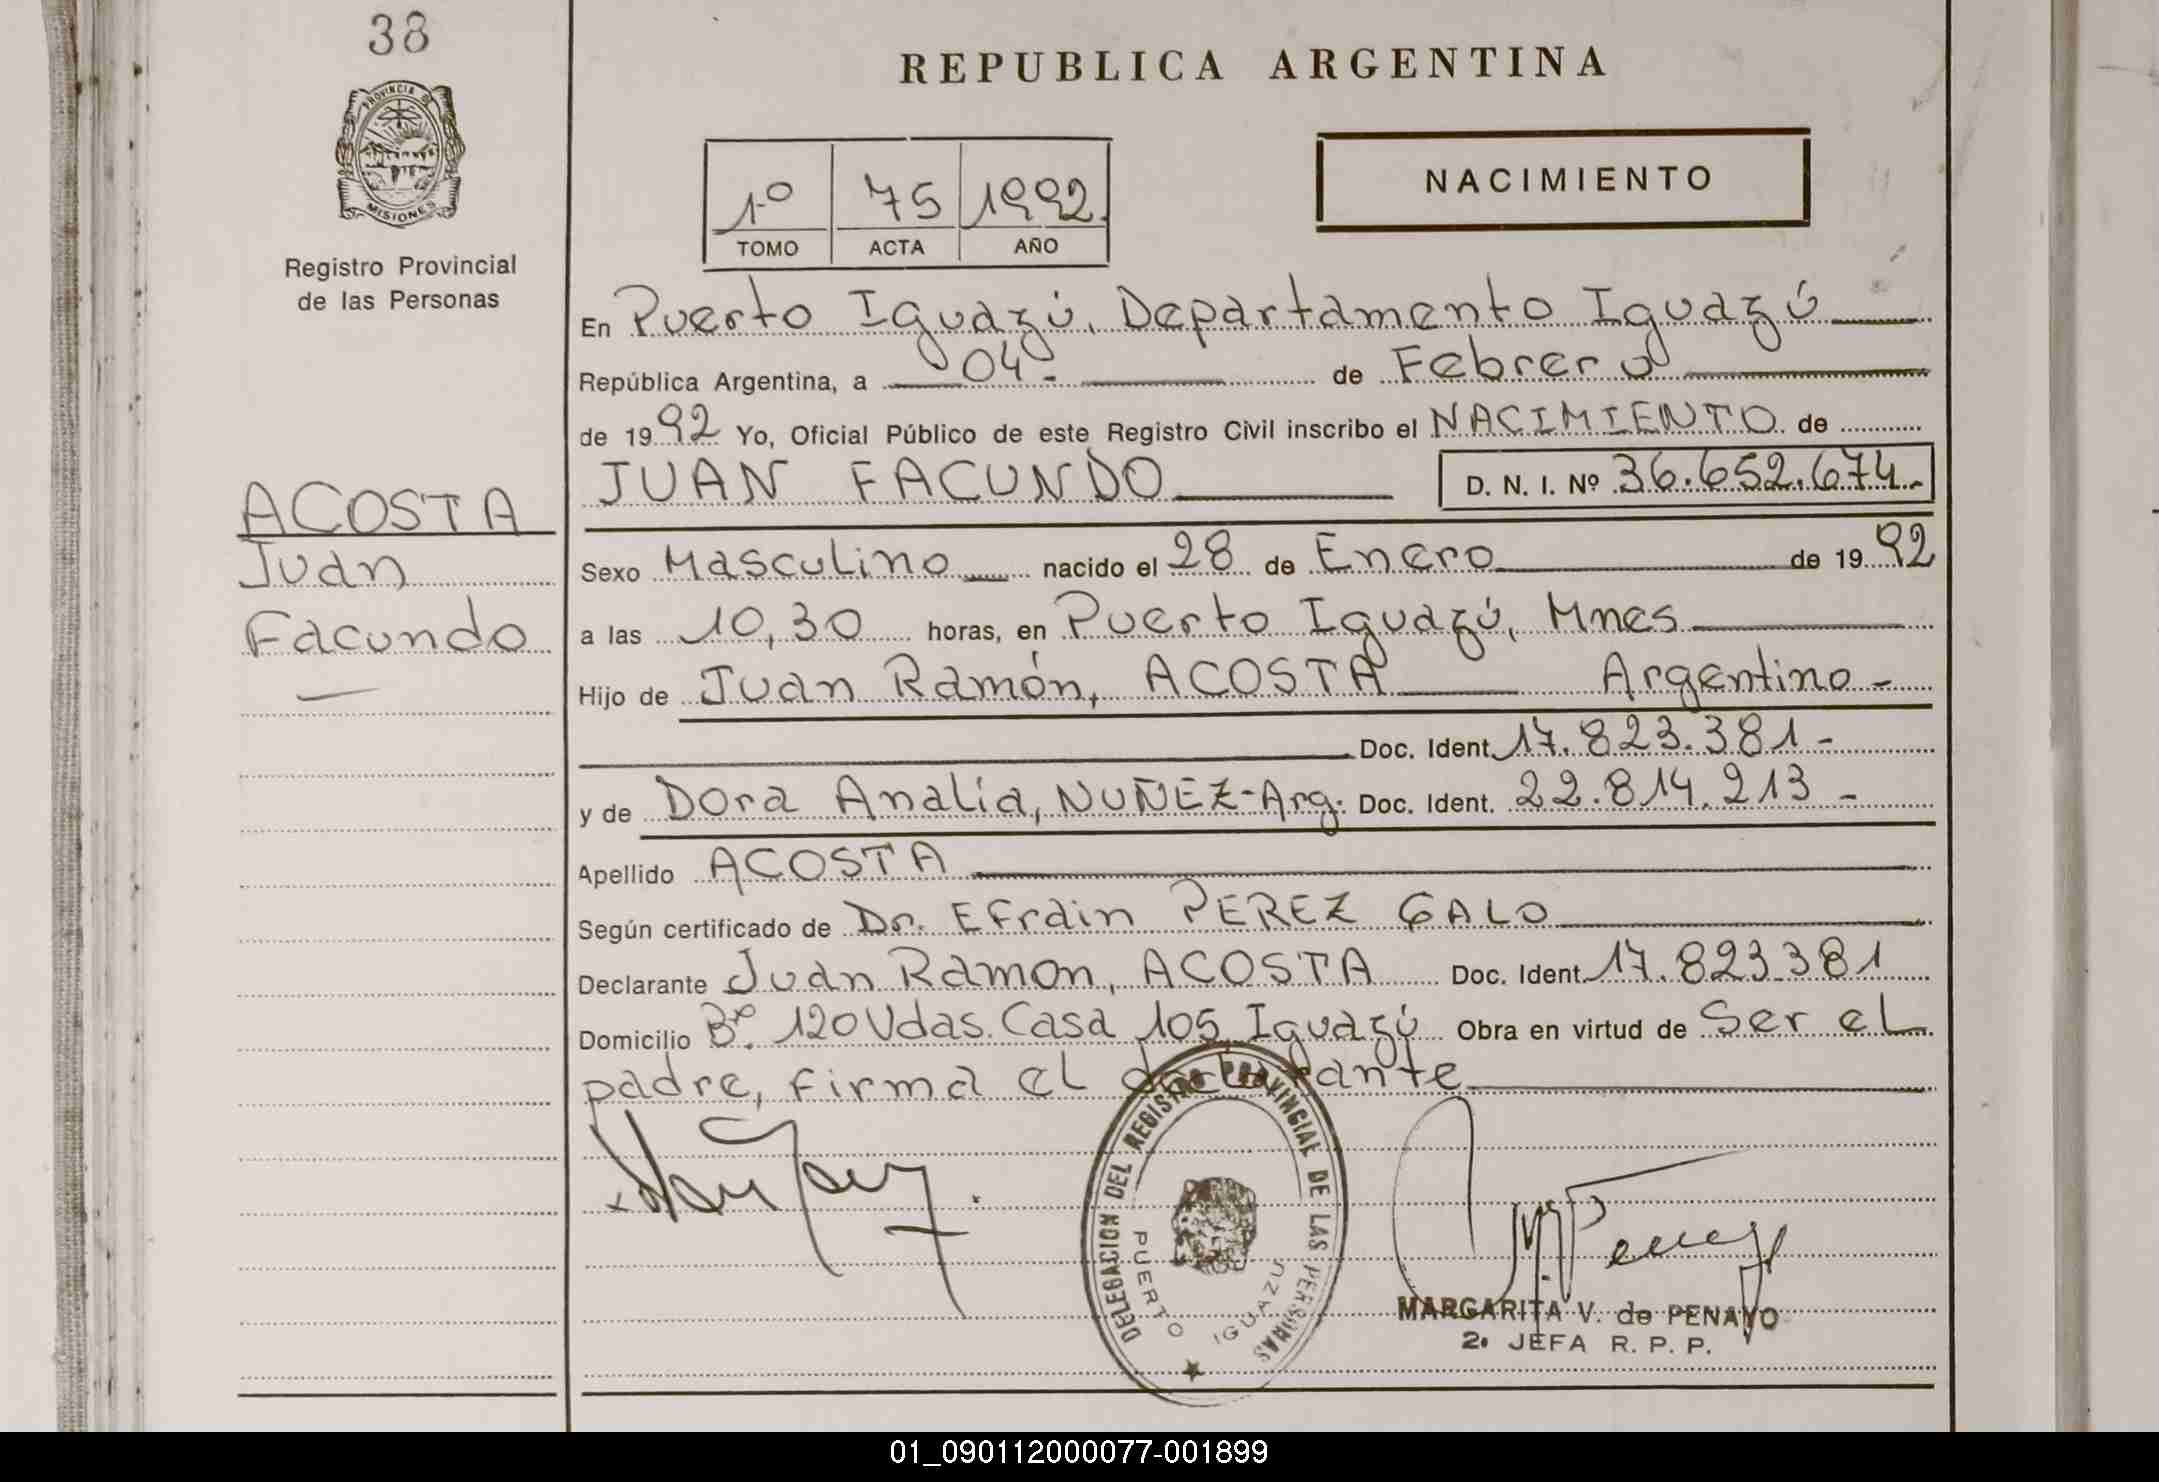 38
PROVINCIA DE
MISIONES
Registro Provincial
de las Personas
ACOSTA
Juan
Facundo
REPUBLICA ARGENTINA
1º 75 1992.
TOMO ACTA AÑO
NACIMIENTO
En Puerto Iguazú, Departamento Iguazú
República Argentina, a 04.- de Febrero
de 1992 Yo, Oficial Público de este Registro Civil inscribo el NACIMIENTO de
JUAN FACUNDO D. N. I. Nº 36.652.674.-
Sexo Masculino nacido el 28 de Enero de 1992
a las 10,30 horas, en Puerto Iguazú, Mnes
Hijo de Juan Ramón, ACOSTA Argentino-
Doc. Ident. 17.823.381-
y de Dora Analía, NUÑEZ-Arg. Doc. Ident. 22.814.213-
Apellido ACOSTA
Según certificado de Dr. Efrain PEREZ GALO
Declarante Juan Ramon, ACOSTA Doc. Ident. 17.823.381
Domicilio Bº. 120 Vdas. Casa 105 Iguazú Obra en virtud de Ser el
padre, firma el declarante
DELEGACION DEL REGISTRO PROVINCIAL DE LAS PERSONAS
PUERTO IGUAZU
MARGARITA V. de PENAYO
2º JEFA R. P. P.
01_090112000077-001899